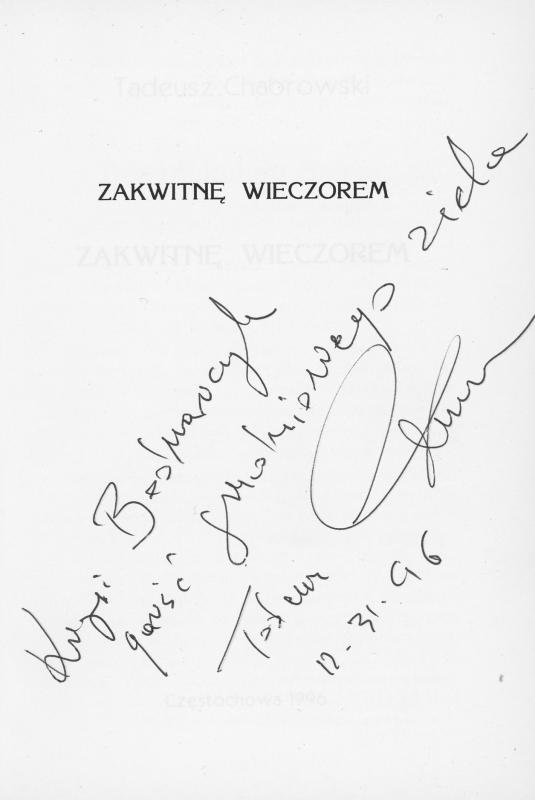 Tadeusz Chabrowski
ZAKWITNĘ WIECZOREM
ZAKWITNĘ WIECZOREM
Krysi Bednarczyk
garść smakowego ziela
Tadeusz
12-31-96
Częstochowa 1996